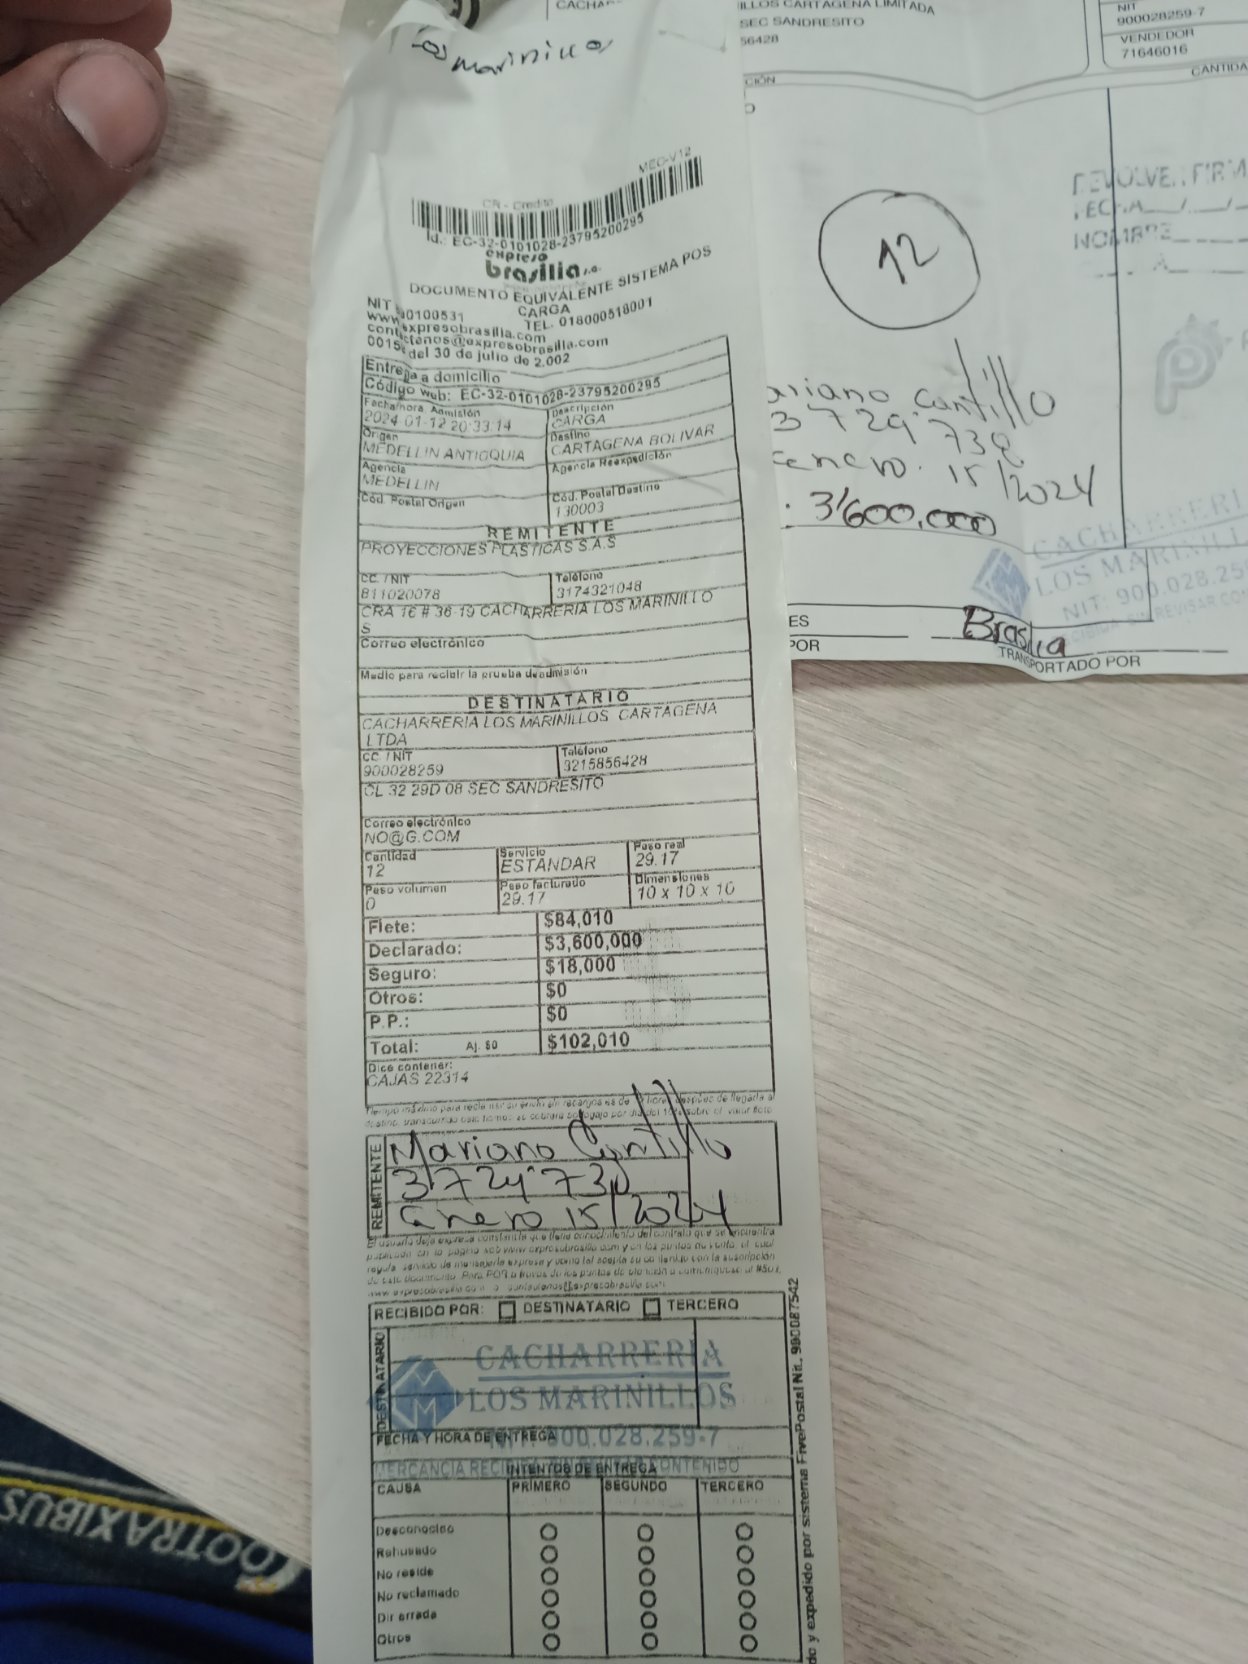 Los marinillos
MEC-V12
CR - Credito
Id.: EC-32-0101028-23795200295
expreso
brasilia s.a.
DOCUMENTO EQUIVALENTE SISTEMA POS
CARGA
NIT 90100531
TEL. 018000518001
www.expresobrasilia.com
contactenos@expresobrasilia.com
0015 del 30 de julio de 2.002
Entrega a domicilio
Código web: EC-32-0101028-23795200295
Fecha/hora Admisión
2024-01-12 20:33:14
Descripción
CARGA
Origen
MEDELLIN ANTIOQUIA
Destino
CARTAGENA BOLIVAR
Agencia
MEDELLIN
Agencia Reexpedición
Cód. Postal Origen
Cód. Postal Destino
130003
REMITENTE
PROYECCIONES PLASTICAS S.A.S
CC. / NIT
811020078
Teléfono
3174321048
CRA 16 # 36 19 CACHARRERIA LOS MARINILLO
S
Correo electrónico
Medio para recibir la prueba de admisión
DESTINATARIO
CACHARRERIA LOS MARINILLOS CARTAGENA
LTDA
CC. / NIT
900028259
Teléfono
3215856428
CL 32 29D 08 SEC SANDRESITO
Correo electrónico
NO@G.COM
Cantidad
12
Servicio
ESTANDAR
Peso real
29.17
Peso volumen
0
Peso facturado
29.17
Dimensiones
10 x 10 x 10
Flete: $84,010
Declarado: $3,600,000
Seguro: $18,000
Otros: $0
P.P.: $0
Total: Aj. $0 $102,010
Dice contener:
CAJAS 22314
REMITENTE
Mariano Cantillo
3724·730
enero 15/2024
RECIBIDO POR: DESTINATARIO TERCERO
DESTINATARIO
CACHARRERIA
LOS MARINILLOS
NIT: 900.028.259-7
FECHA Y HORA DE ENTREGA
INTENTOS DE ENTREGA
CAUSA PRIMERO SEGUNDO TERCERO
Desconocido
Rehusado
No reside
No reclamado
Dir errada
Otros
do y expedido por sistema FivePostal Nit. 900087542
CACHAR
ILLOS CARTAGENA LIMITADA
SEC SANDRESITO
56428
NIT
900028259-7
VENDEDOR
71646016
CIÓN
CANTIDA
12
DEVOLVER FIRMA
FECHA __/__/__
NOMBRE
ariano Cantillo
3729·738
enero. 15/2024
: 3'600,000
CACHARRERI
LOS MARINILL
NIT: 900.028.25
ES
POR
Brasilia
TRANSPORTADO POR
COOTRAXIBUS